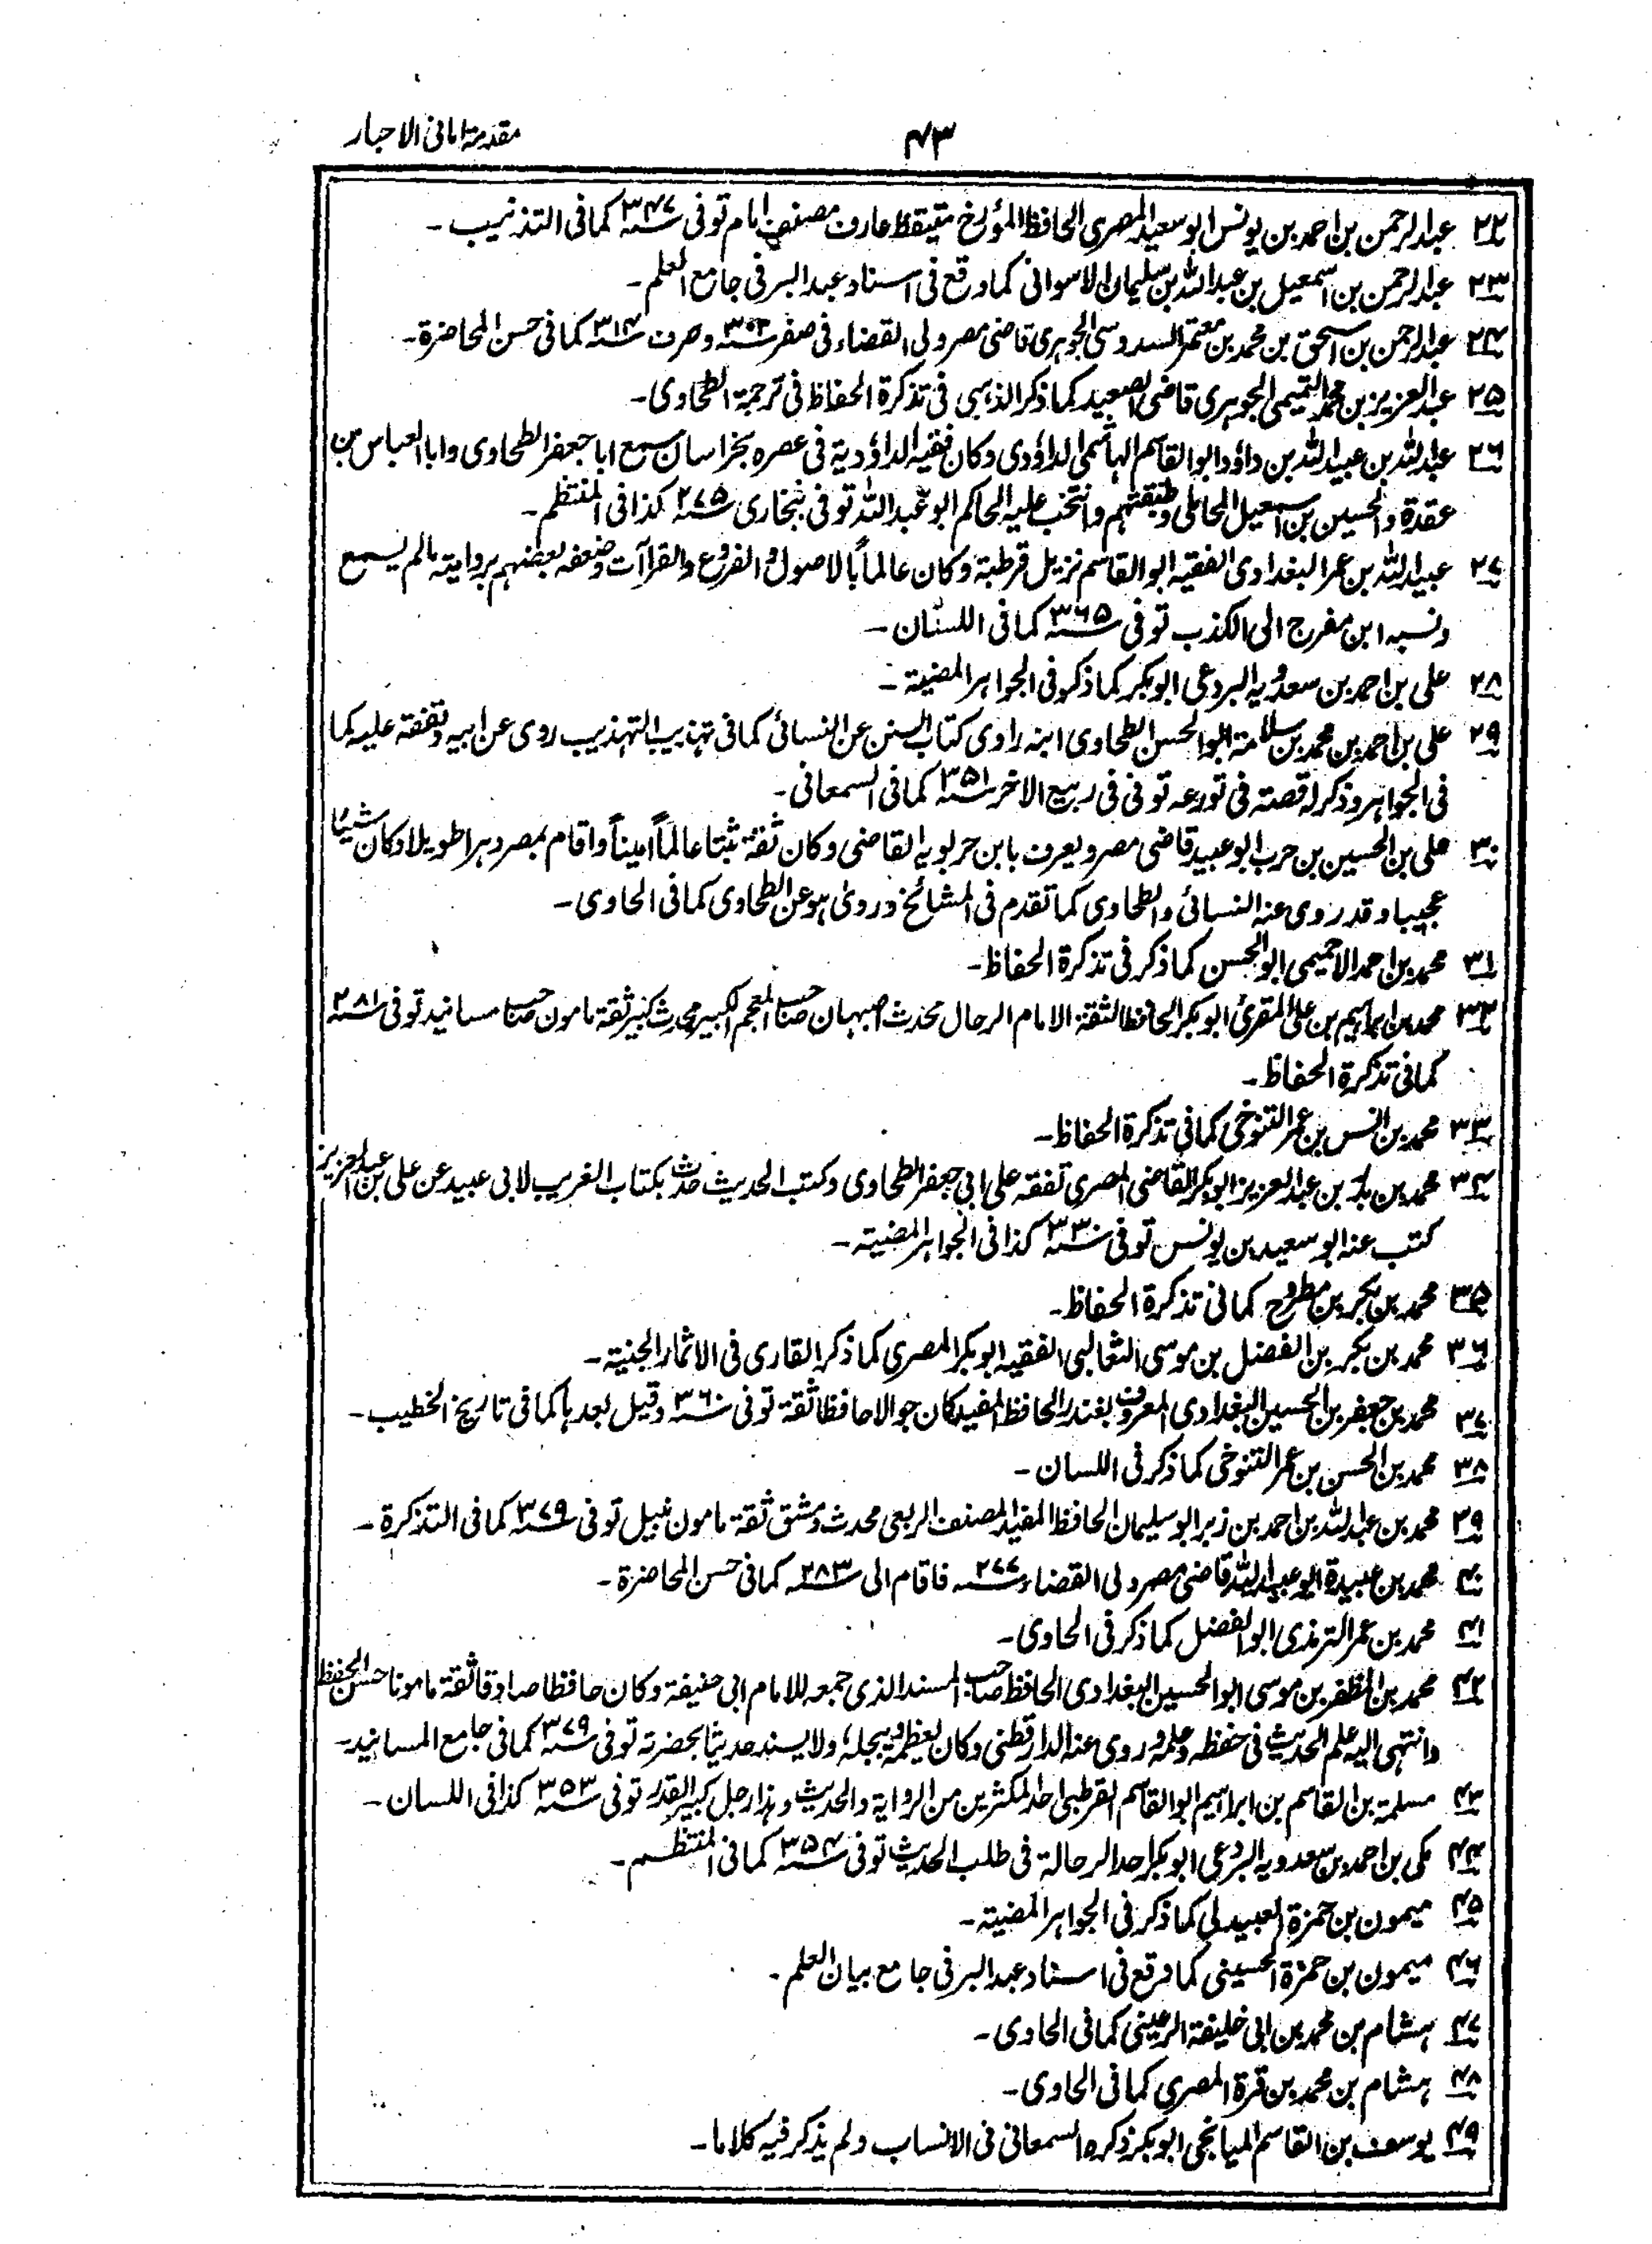 مقدمة امانی الاحبار
۴۳
۲۲ عبدالرحمن بن احمد بن یونس ابو سعید المصری الحافظ المؤرخ متیقظ عارف مصنف امام توفی ۳۴۷ سنہ کمافی التذنیب۔
۲۳ عبدالرحمن بن اسمعیل بن عبداللہ بن سلیمان الاسوانی کما وقع فی اسناد عبدالبر فی جامع العلم۔
۲۴ عبدالرحمن بن اسحٰق بن محمد بن معتمر السدوسی الجوہری قاضی مصر ولی القضاء فی صفر ۳۰۳ سنہ وصرف ۳۱۴ سنہ کمافی حسن المحاضرة۔
۲۵ عبدالعزیز بن محمد التمیمی الجوہری قاضی الصعید کما ذکر الذہبی فی تذکرة الحفاظ فی ترجمة الطحاوی۔
۲۶ عبداللہ بن عبیداللہ بن داؤد ابوالقاسم الہاشمی الداؤدی وکان فقیہ الداؤدیة فی عصرہ بخراسان سمع اباجعفر الطحاوی واباالعباس بن
عقدة والحسین بن اسمعیل المحاملی وطبقتہم وانتخب علیہ الحاکم ابو عبداللہ توفی ببخاری ۲۷۵ سنہ کذافی المنتظم۔
۲۷ عبیداللہ بن عمر البغدادی الفقیہ ابوالقاسم نزیل قرطبة وکان عالماً بالاصول والفروع والقراآت وضعفہ بعضہم بروایتہ مالم یسمع
ونسبہ ابن مفرج الی الکذب توفی ۳۶۵ سنہ کمافی اللسان۔
۲۸ علی بن احمد بن سعدویہ البردعی ابوبکر کما ذکر فی الجواہر المضیة۔
۲۹ علی بن احمد بن محمد بن سلامة ابوالحسن الطحاوی ابنہ راوی کتاب السنن عن النسائی کمافی تہذیب التہذیب روی عن ابیہ وتفقہ علیہ کما
فی الجواہر وذکر لہ قصتہ فی تورعہ توفی فی ربیع الاخر ۳۵۱ سنہ کمافی السمعانی۔
۳۰ علی بن الحسین بن حرب ابو عبید قاضی مصر ویعرف بابن حربویہ القاضی وکان ثقة ثبتا عالماً امیناً واقام بمصر دہرا طویلا وکان شیئا
عجیبا وقد روی عنہ النسائی والطحاوی کما تقدم فی المشائخ وروی ہو عن الطحاوی کمافی الحاوی۔
۳۱ محمد بن احمد الاخمیمی ابوالحسن کما ذکر فی تذکرة الحفاظ۔
۳۲ محمد بن ابراہیم بن علی المقرئ ابوبکر الحافظ الثقة الامام الرحال محدث اصبہان صاحب المعجم الکبیر محدث کبیر ثقة مامون صاحب مسانید توفی ۳۸۱ سنہ
کمافی تذکرة الحفاظ۔
۳۳ محمد بن انس بن عمر التنوخی کمافی تذکرة الحفاظ۔
۳۴ محمد بن بدر بن عبدالعزیز ابوبکر القاضی المصری تفقہ علی ابی جعفر الطحاوی وکتب الحدیث حدث بکتاب الغریب لابی عبید عن علی بن عبدالعزیز
کتب عنہ ابو سعید بن یونس توفی ۳۳۰ سنہ کذافی الجواہر المضیة۔
۳۵ محمد بن بکر بن مطروح کمافی تذکرة الحفاظ۔
۳۶ محمد بن بکر بن الفضل بن موسی الثعالبی الفقیہ ابوبکر المصری کما ذکر القاری فی الاثمار الجنیة۔
۳۷ محمد بن جعفر بن الحسین البغدادی المعروف بغندر الحافظ المفید کان جوالا حافظا ثقة توفی ۳۶۰ سنہ وقیل بعدہا کمافی تاریخ الخطیب۔
۳۸ محمد بن الحسن بن عمر التنوخی کما ذکر فی اللسان۔
۳۹ محمد بن عبداللہ بن احمد بن زبر ابو سلیمان الحافظ المفید المصنف الربعی محدث دمشق ثقة مامون نبیل توفی ۳۷۹ سنہ کمافی التذکرة۔
۴۰ محمد بن عبیدة ابو عبیداللہ قاضی مصر ولی القضاء ۲۷۷ سنہ فاقام الی ۲۸۳ سنہ کمافی حسن المحاضرة۔
۴۱ محمد بن عمر الترمذی ابوالفضل کما ذکر فی الحاوی۔
۴۲ محمد بن المظفر بن موسی ابوالحسین البغدادی الحافظ صاحب المسند الذی جمعہ للامام ابی حنیفة وکان حافظا صادقا ثقة مامونا حسن الحفظ
وانتہی الیہ علم الحدیث فی حفظہ وعلمہ وروی عنہ الدارقطنی وکان یعظمہ ویبجلہ ولا یسند حدیثا بحضرتہ توفی ۳۷۹ سنہ کمافی جامع المسانید۔
۴۳ مسلمة بن القاسم بن ابراہیم ابوالقاسم القرطبی احد المکثرین من الروایة والحدیث وہذا رجل کبیر القدر توفی ۳۵۳ سنہ کذافی اللسان۔
۴۴ مکی بن احمد بن سعدویہ البردعی ابوبکر احد الرحالة فی طلب الحدیث توفی ۳۵۴ سنہ کمافی المنتظم۔
۴۵ میمون بن حمزة العبیدلی کما ذکر فی الجواہر المضیة۔
۴۶ میمون بن حمزة الحسینی کما وقع فی اسناد عبدالبر فی جامع بیان العلم۔
۴۷ ہشام بن محمد بن ابی خلیفة الرعینی کمافی الحاوی۔
۴۸ ہشام بن محمد بن قرة المصری کمافی الحاوی۔
۴۹ یوسف بن القاسم المیانجی ابوبکر ذکرہ السمعانی فی الانساب ولم یذکر فیہ کلاما۔